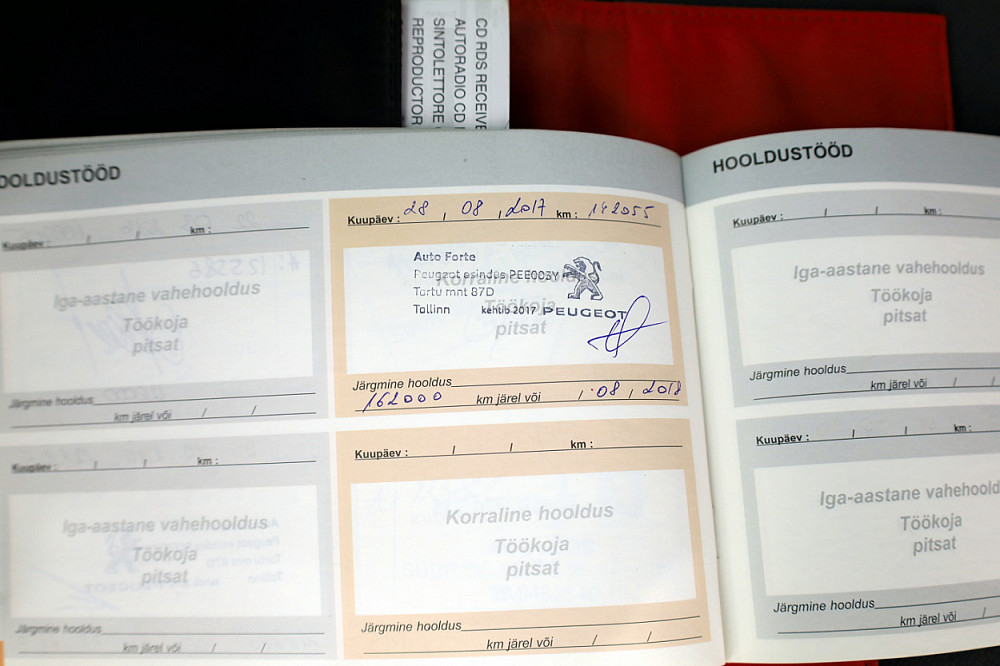 CD RDS RECEIVE
AUTORADIO CD
SINTOLETTORE
REPRODUCTOR
OOLDUSTÖÖD
Kuupäev : / / km :
Iga-aastane vahehooldus
Töökoja
pitsat
Järgmine hooldus
km järel või / /
Kuupäev : / / km :
Iga-aastane vahehooldus
Töökoja
pitsat
Järgmine hooldus
km järel või / /
Kuupäev : 28 , 08 , 2017 km : 142055
Korraline hooldus
Töökoja
Auto Forte
Peugeot esindus PEE003Y
Tartu mnt 87D
Tallinn kehtib 2017 PEUGEOT
Järgmine hooldus
162000 km järel või / 08 , 2018
Kuupäev : / / km :
Korraline hooldus
Töökoja
pitsat
Järgmine hooldus
km järel või / /
HOOLDUSTÖÖD
Kuupäev : / / km :
Iga-aastane vahehooldus
Töökoja
pitsat
Järgmine hooldus
km järel või / /
Kuupäev : / / km :
Iga-aastane vahehoold
Töökoja
pitsat
Järgmine hooldus
km järel või / /